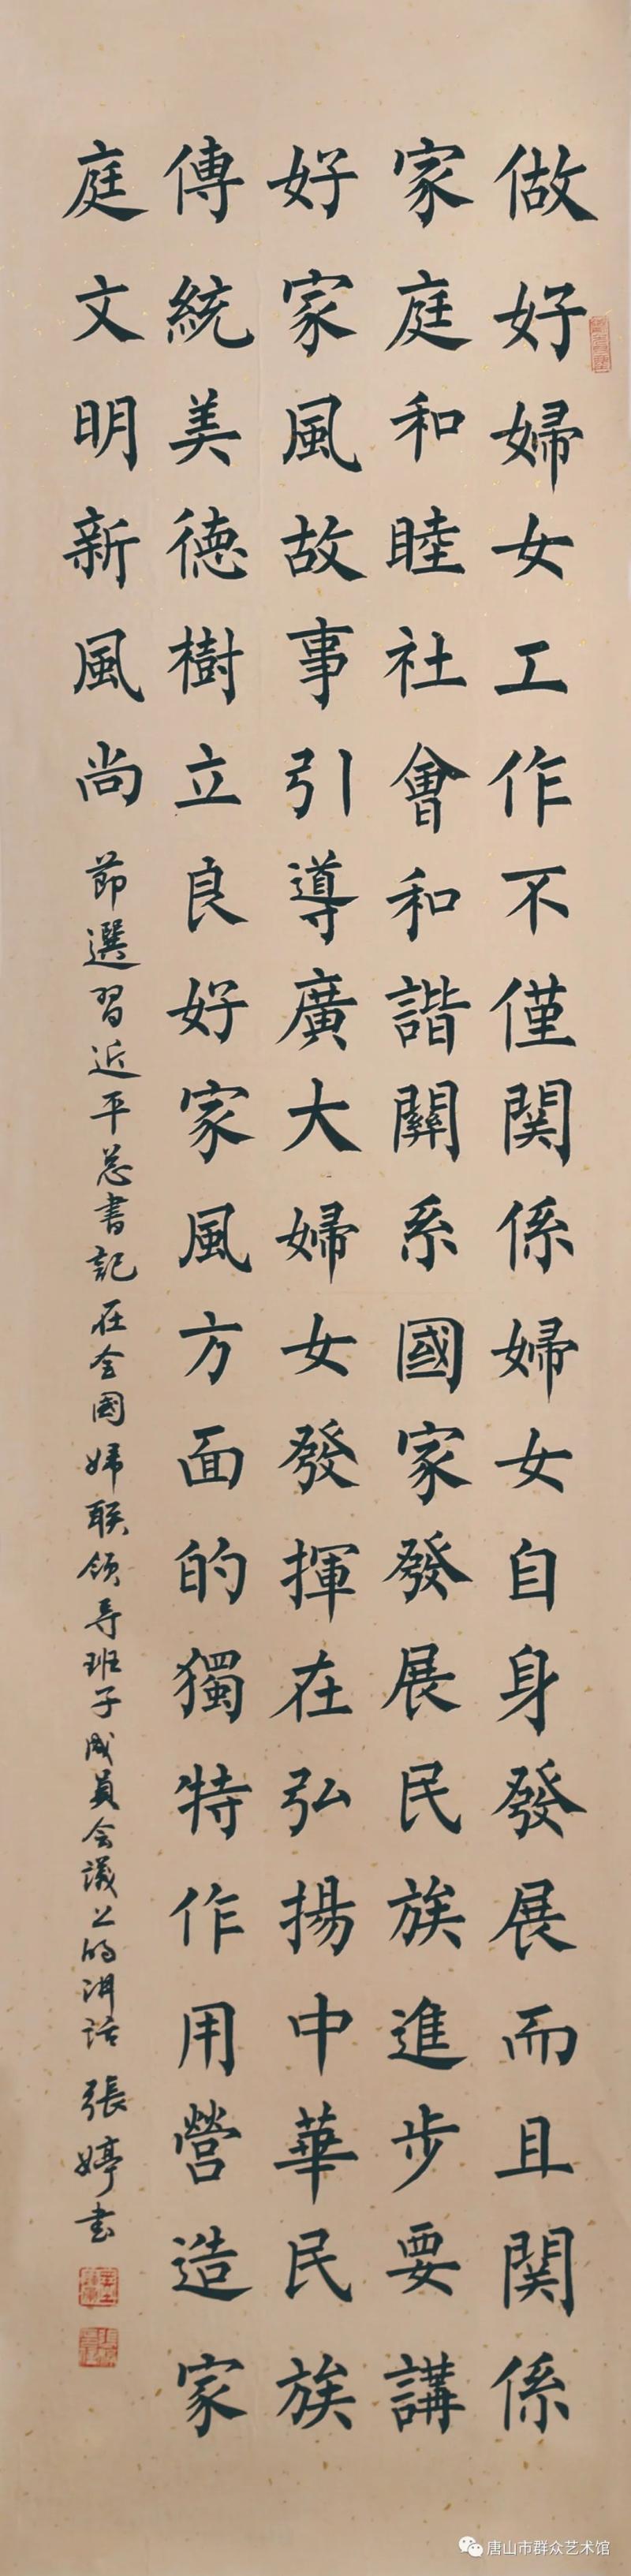 做好婦女工作不僅関係婦女自身發展而且関係
家庭和睦社會和諧關系國家發展民族進步要講
好家風故事引導廣大婦女發揮在弘揚中華民族
傳統美德樹立良好家風方面的獨特作用營造家
庭文明新風尚
節選習近平总書記在全國婦联领导班子成員会議上的講话 張婷书
唐山市群众艺术馆